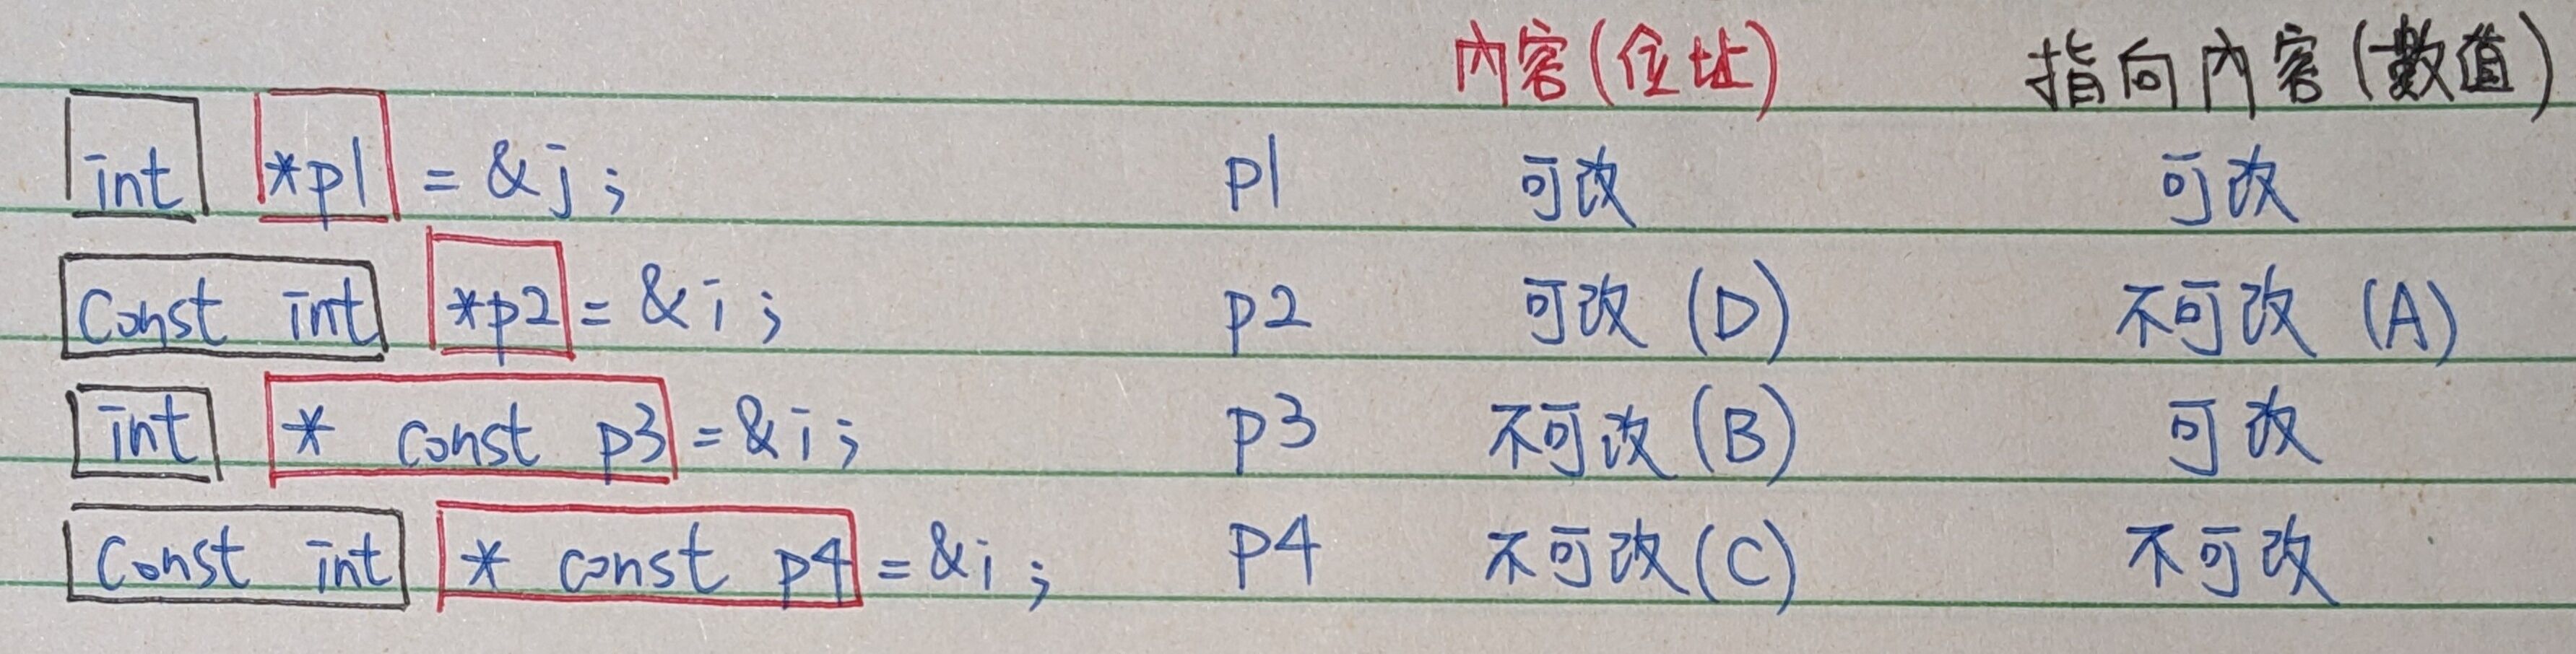 內容(位址) 指向內容(數值)
int *p1 = &j; p1 可改 可改
Const int *p2 = &i; p2 可改 (D) 不可改 (A)
int * const p3 = &i; p3 不可改 (B) 可改
Const int * const p4 = &i; p4 不可改 (C) 不可改